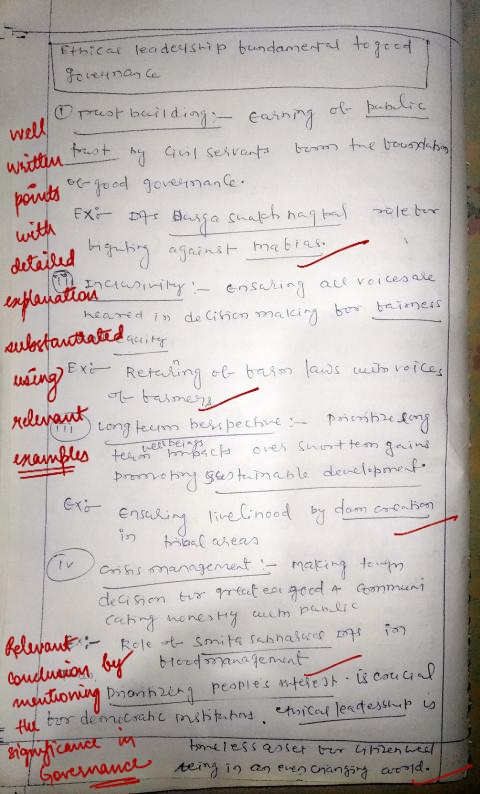 Ethical leadership fundamental to good
governance
(i) Trust building:- earning of public
trust by civil servants form the foundation
of good governance.
Ex:- IAS Durga shakti nagpal role for
fighting against mafias.
(ii) Inclusivity:- ensuring all voices are
heared in decision making for fairness
equity
Ex:- Retaring of farm laws with voices
of farmers
(iii) Long term perspective:- Prioritize long
wellbeings
term impacts over short term gains
promoting sustainable development.
Ex:- ensuring livelihood by dam creation
in tribal areas
(iv) Crisis management:- making tough
decision for greater good & communi
cating honestly with public
Ex:- Role of Smita Sabharwal IAS in
flood management
Prioritizing people's interest is crucial
for democratic institutions. ethical leadership is
timeless asset for citizen well
being in an ever changing world.
well
written
points
with
detailed
explanation
substantiated
using
relevant
examples
Relevant
conclusion by
mentioning
the
significance in
Governance